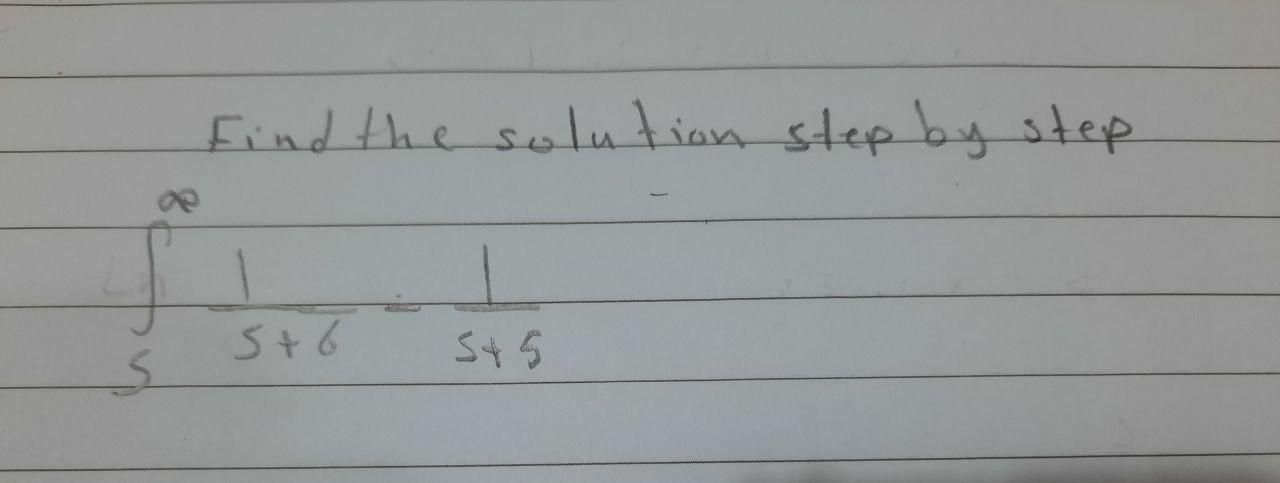 Find the solution step by step
∫_s^∞ 1/(s+6) - 1/(s+5)